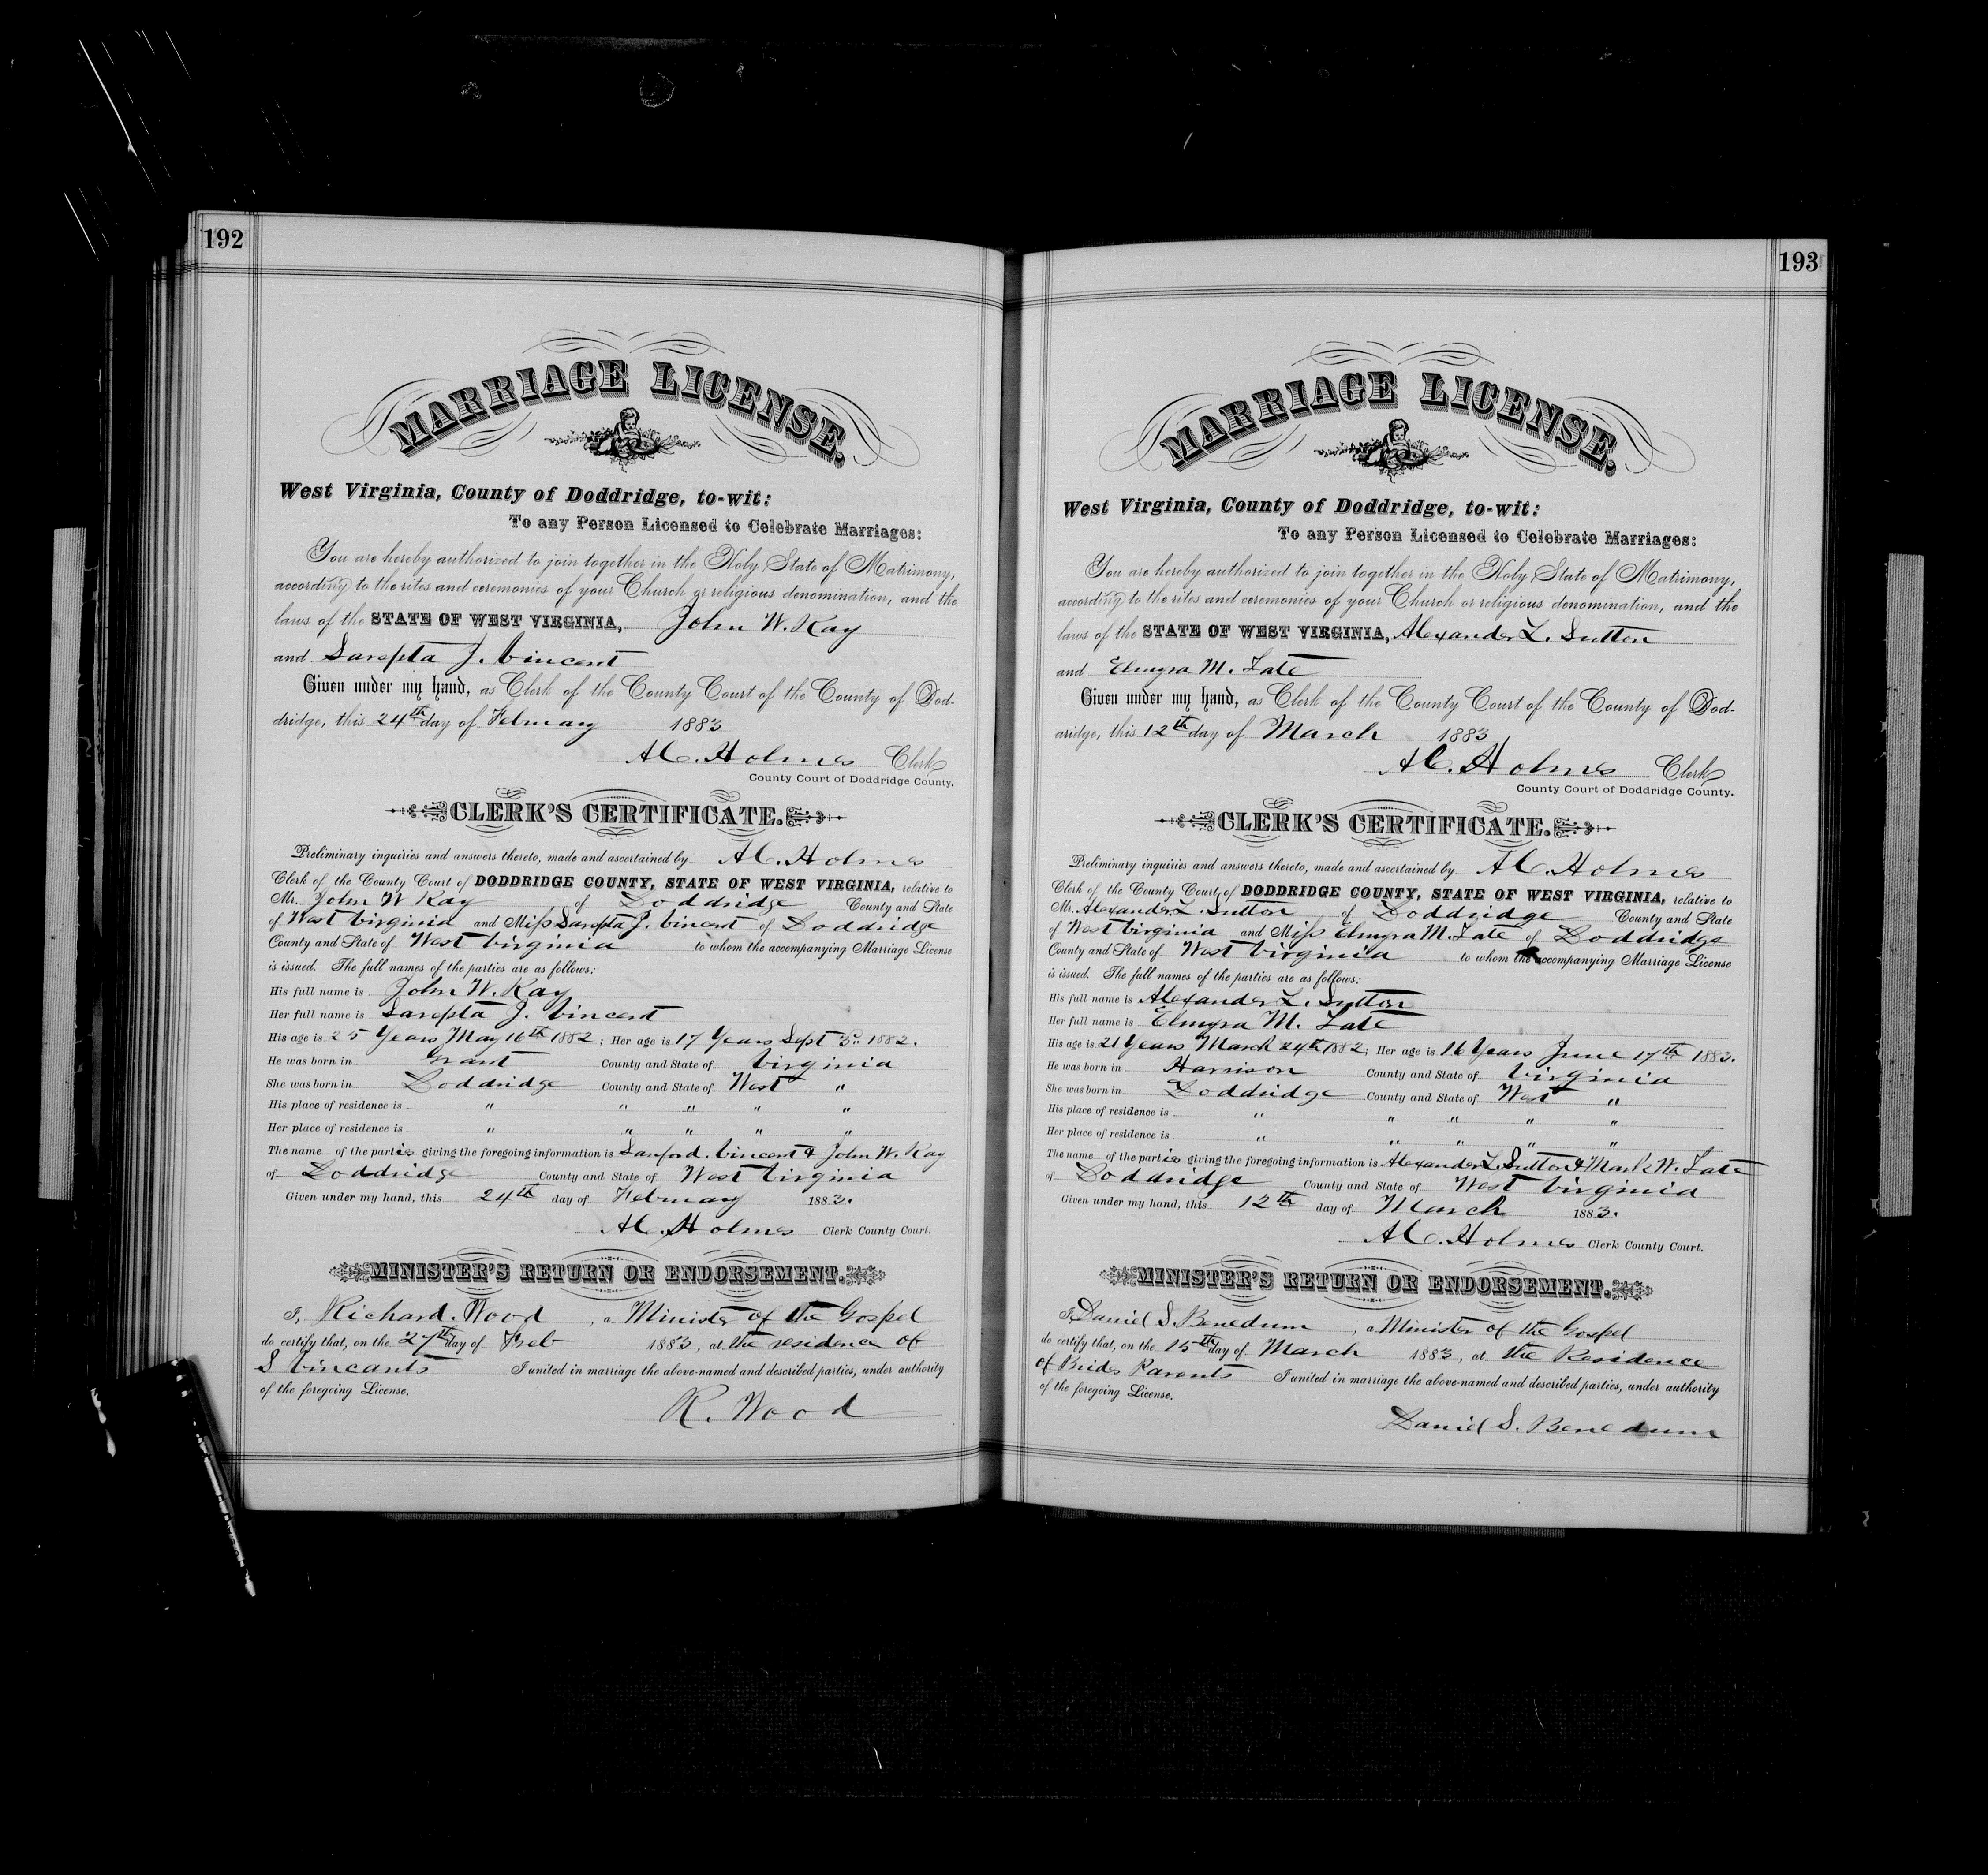 192
MARRIAGE LICENSE.
West Virginia, County of Doddridge, to-wit:
To any Person Licensed to Celebrate Marriages:
You are hereby authorized to join together in the Holy State of Matrimony,
according to the rites and ceremonies of your Church or religious denomination, and the
laws of the STATE OF WEST VIRGINIA, John W. Kay
and Sarepta J. Vincent
Given under my hand, as Clerk of the County Court of the County of Dod-
dridge, this 24th day of February 1883
A.C. Holmes Clerk
County Court of Doddridge County.
CLERK'S CERTIFICATE.
Preliminary inquiries and answers thereto, made and ascertained by A.C. Holmes
Clerk of the County Court of DODDRIDGE COUNTY, STATE OF WEST VIRGINIA, relative to
Mr. John W Kay of Doddridge County and State
of West Virginia and Miss Sarepta J. Vincent of Doddridge
County and State of West Virginia to whom the accompanying Marriage License
is issued. The full names of the parties are as follows:
His full name is John W. Kay
Her full name is Sarepta J. Vincent
His age is 25 Years May 16th 1882; Her age is 17 Years Sept 3" 1882.
He was born in Grant County and State of Virginia
She was born in Doddridge County and State of West "
His place of residence is " " " " "
Her place of residence is " " " " "
The name of the partis giving the foregoing information is Sanford. Vincent & John W. Kay
of Doddridge County and State of West Virginia
Given under my hand, this 24th day of February 1883.
A.C. Holmes Clerk County Court.
MINISTER'S RETURN OR ENDORSEMENT.
I, Richard. Wood, a Minister of the Gospel
do certify that, on the 27th day of Feb 1883, at the residence of
S Vincents I united in marriage the above-named and described parties, under authority
of the foregoing License.
R. Wood
193
MARRIAGE LICENSE.
West Virginia, County of Doddridge, to-wit:
To any Person Licensed to Celebrate Marriages:
You are hereby authorized to join together in the Holy State of Matrimony,
according to the rites and ceremonies of your Church or religious denomination, and the
laws of the STATE OF WEST VIRGINIA, Alexander L. Sutton
and Elmyra M. Tate
Given under my hand, as Clerk of the County Court of the County of Dod-
dridge, this 12th day of March 1883
A.C. Holmes Clerk
County Court of Doddridge County.
CLERK'S CERTIFICATE.
Preliminary inquiries and answers thereto, made and ascertained by A.C. Holmes
Clerk of the County Court of DODDRIDGE COUNTY, STATE OF WEST VIRGINIA, relative to
Mr. Alexander L. Sutton of Doddridge County and State
of West Virginia and Miss Elmyra M. Tate of Doddridge
County and State of West Virginia to whom the accompanying Marriage License
is issued. The full names of the parties are as follows:
His full name is Alexander L. Sutton
Her full name is Elmyra M. Tate
His age is 21 Years March 24th 1882; Her age is 16 Years June 17th 1883.
He was born in Harrison County and State of Virginia
She was born in Doddridge County and State of West "
His place of residence is " " " " "
Her place of residence is " " " " "
The name of the partis giving the foregoing information is Alexander L. Sutton & Mark W. Tate
of Doddridge County and State of West Virginia
Given under my hand, this 12th day of March 1883.
A.C. Holmes Clerk County Court.
MINISTER'S RETURN OR ENDORSEMENT.
I, Daniel S. Benedum, a Minister of the Gospel
do certify that, on the 15th day of March 1883, at the Residence
of Brids Parents I united in marriage the above-named and described parties, under authority
of the foregoing License.
Daniel S. Benedum